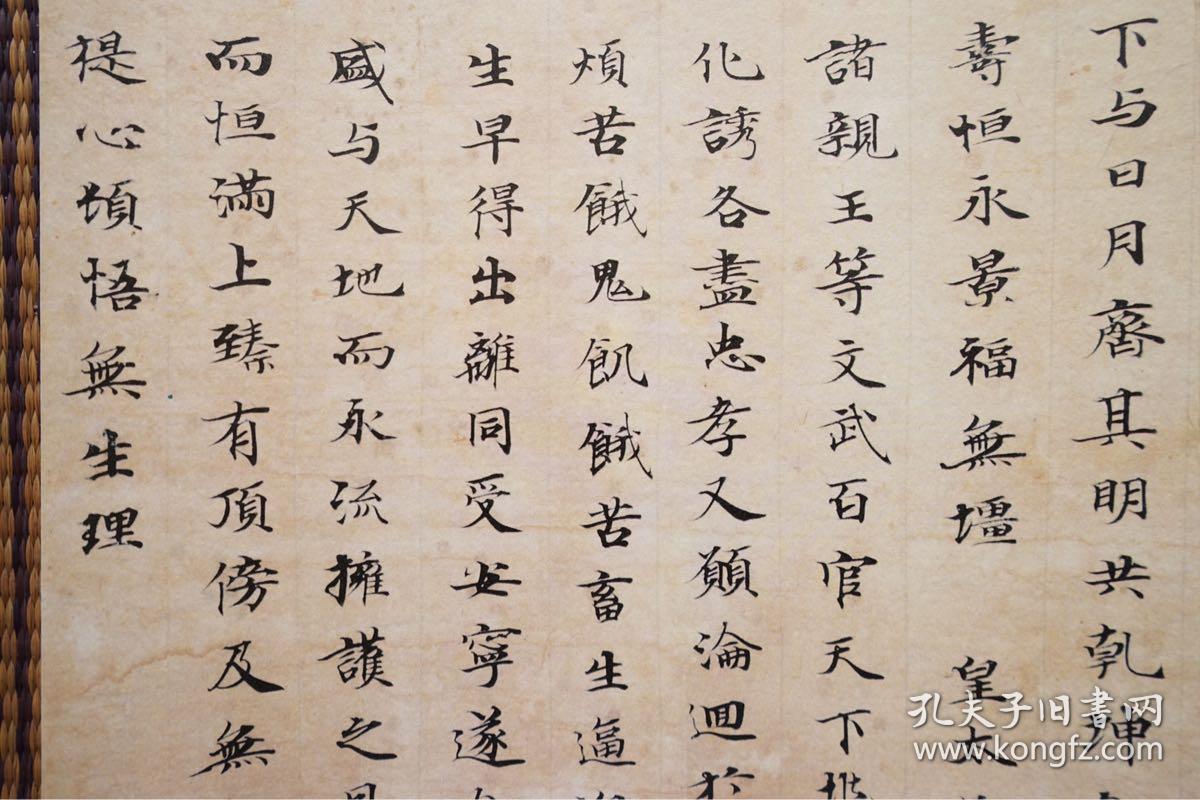 下与日月齊其明共乹坤
壽恒永景福無壃 皇太
諸親王等文武百官天下
化誘各盡忠孝又願淪迴於
煩苦餓鬼飢餓苦畜生逼
生早得出離同受安寧遂
盛与天地而永流擁護之
而恒滿上臻有頂傍及無
提心頓悟無生理
孔夫子旧书网
www.kongfz.com